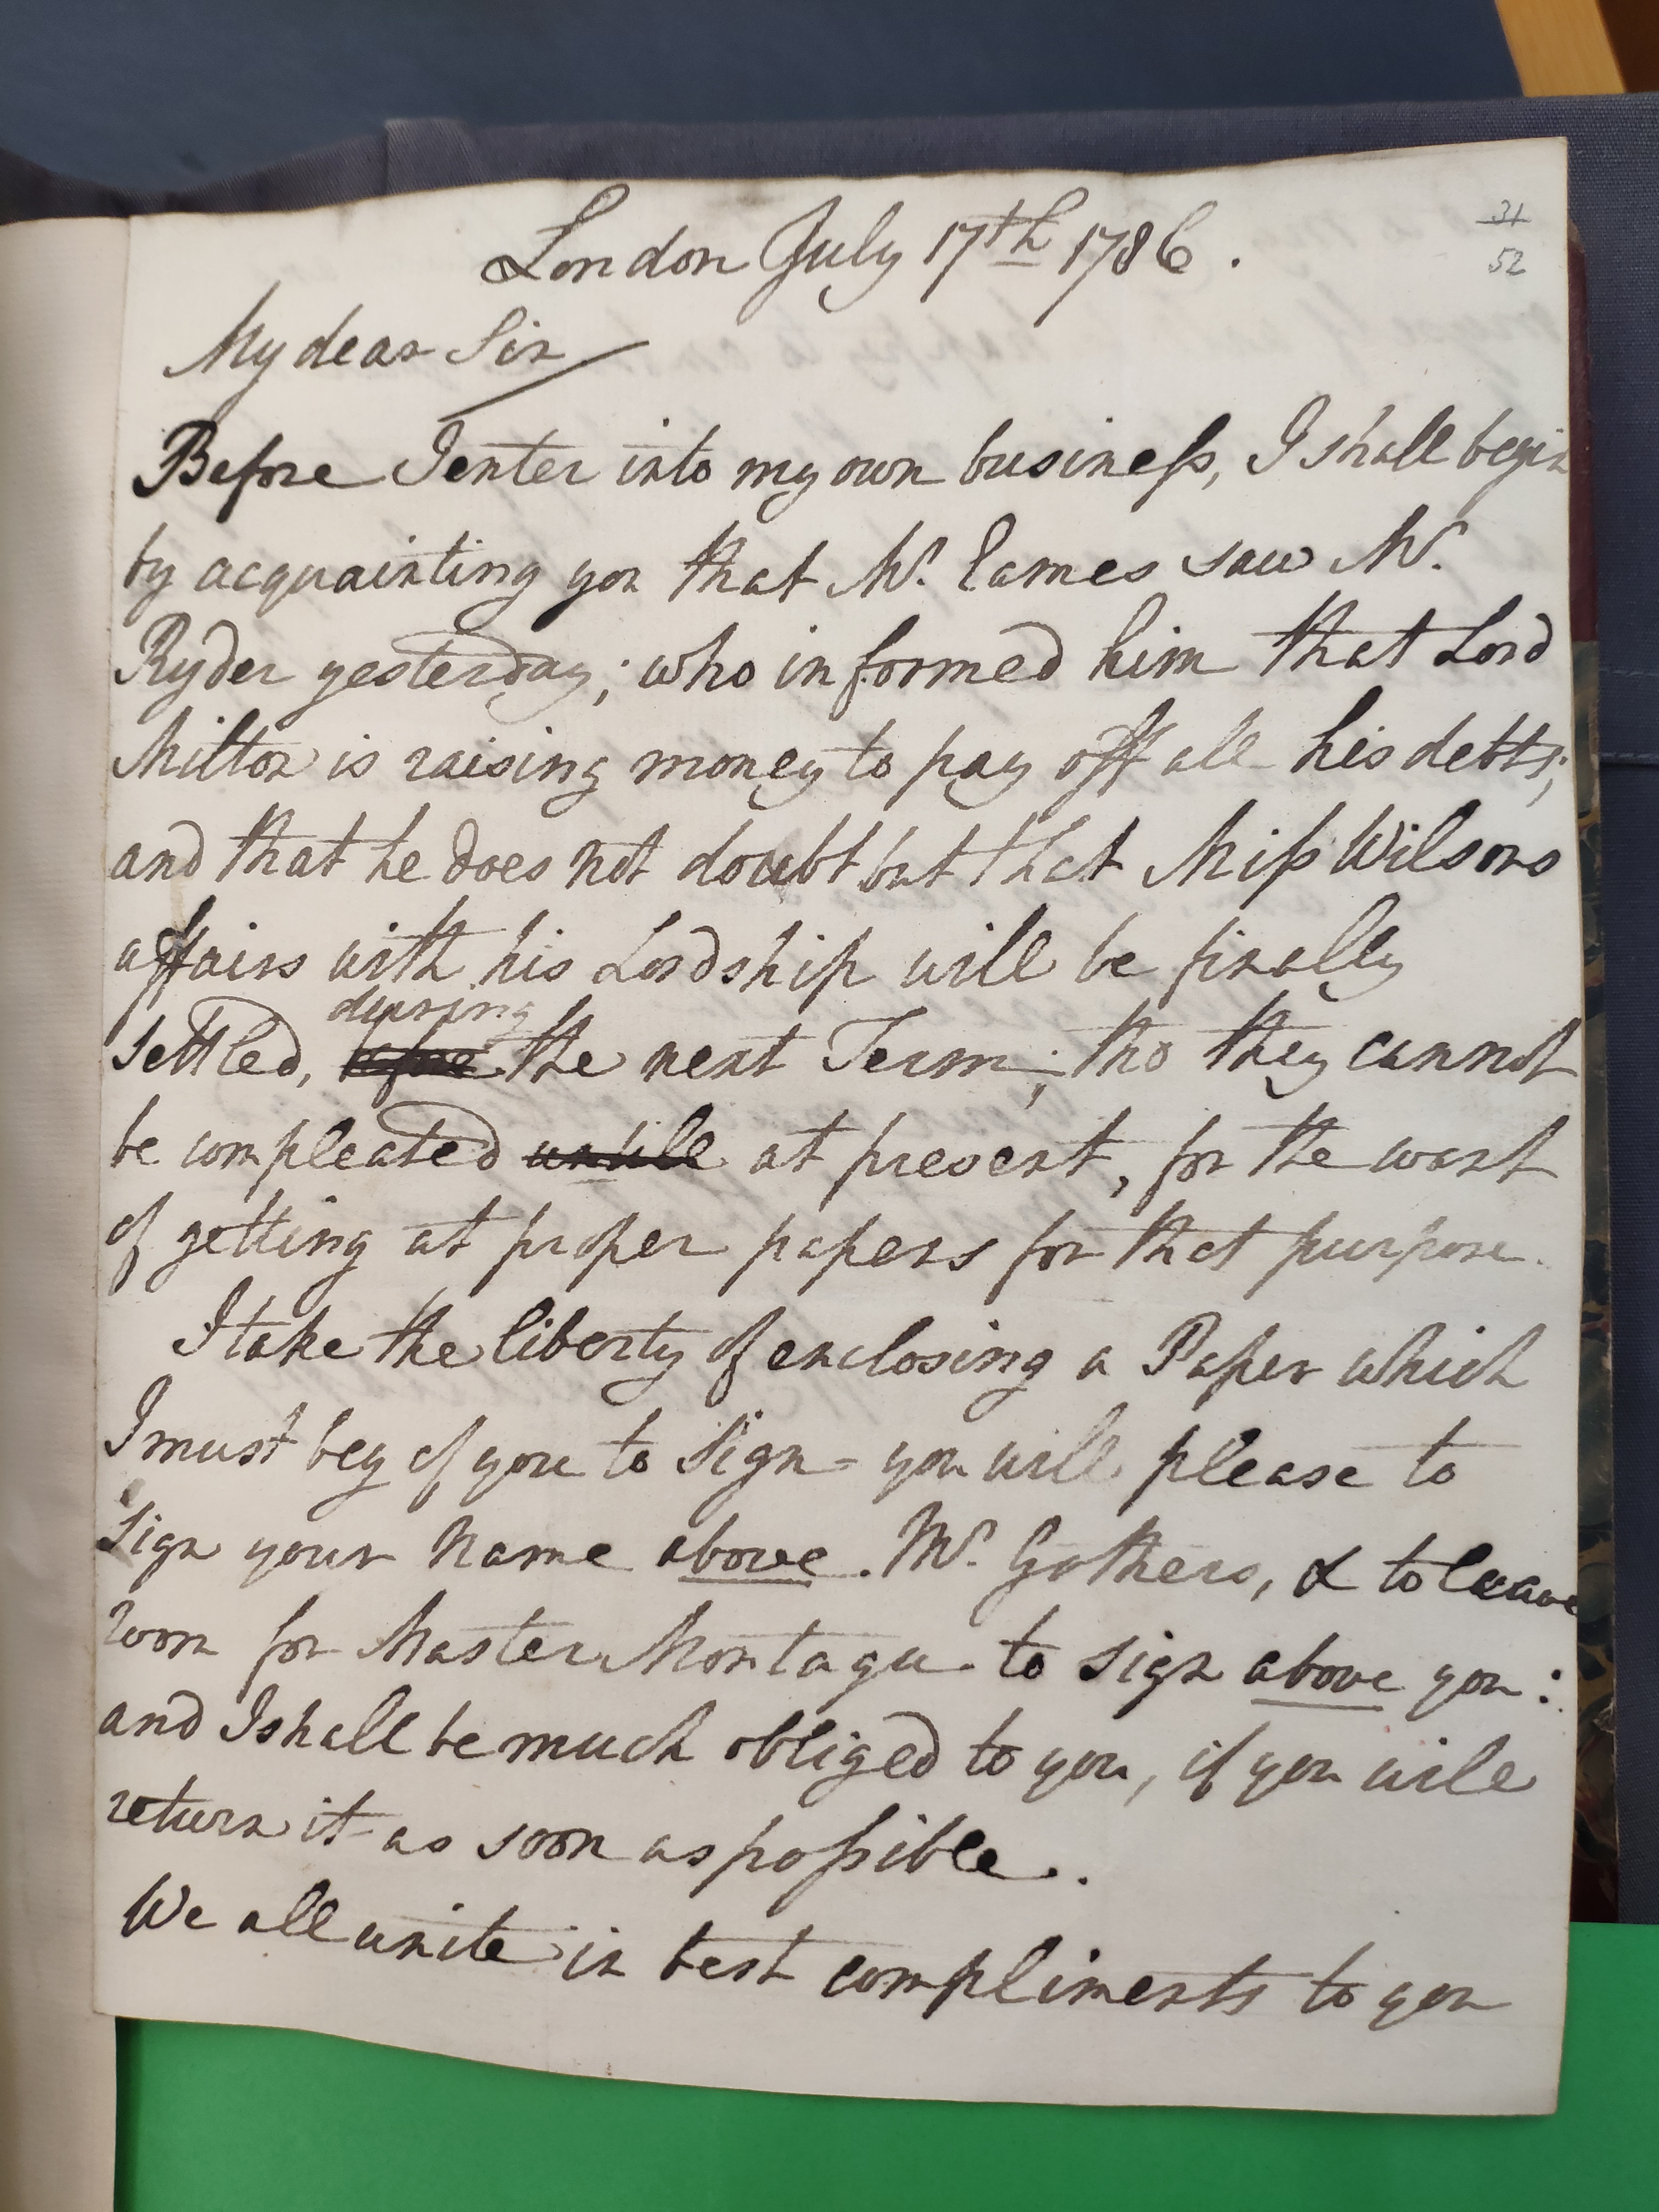 London July 17th 1786.
31
52
My dear Sir
Before I enter into my own business, I shall begin
by acquainting you that Mr. Eames saw Mr.
Ryder yesterday; who informed him that Lord
Milton is raising money to pay off all his debts;
and that he does not doubt but that Miss Wilsons
affairs with his Lordship will be finally
during
settled, before the next Term; tho they cannot
be compleated untill at present, for the want
of getting at proper papers for that purpose.
I take the liberty of enclosing a Paper which
I must beg of you to sign - you will please to
sign your Name above. Mr. Gothers, & to leave
room for Master Montagu to sign above you:
and I shall be much obliged to you, if you will
return it as soon as possible.
We all unite in best compliments to you